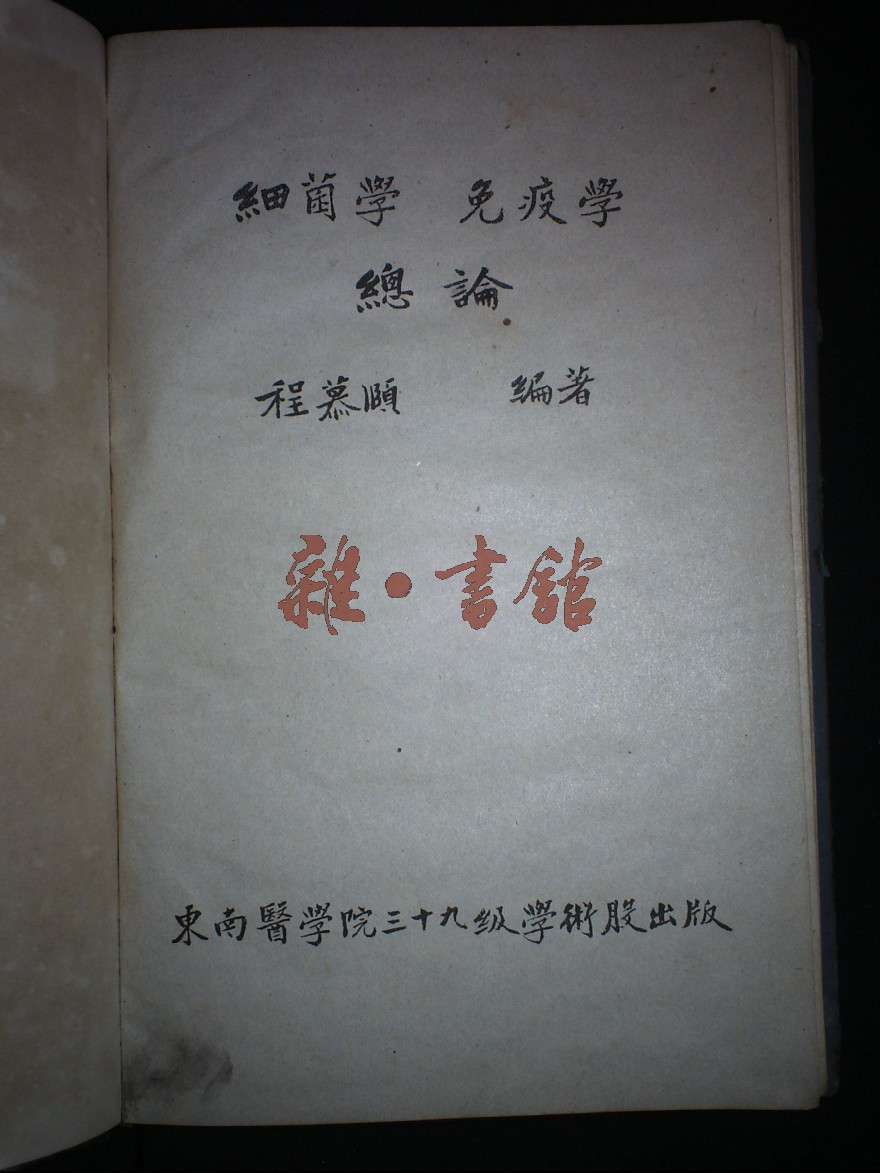 細菌學 免疫學
總論
程慕頤 編著
雜·書館
東南醫學院三十九级學術股出版